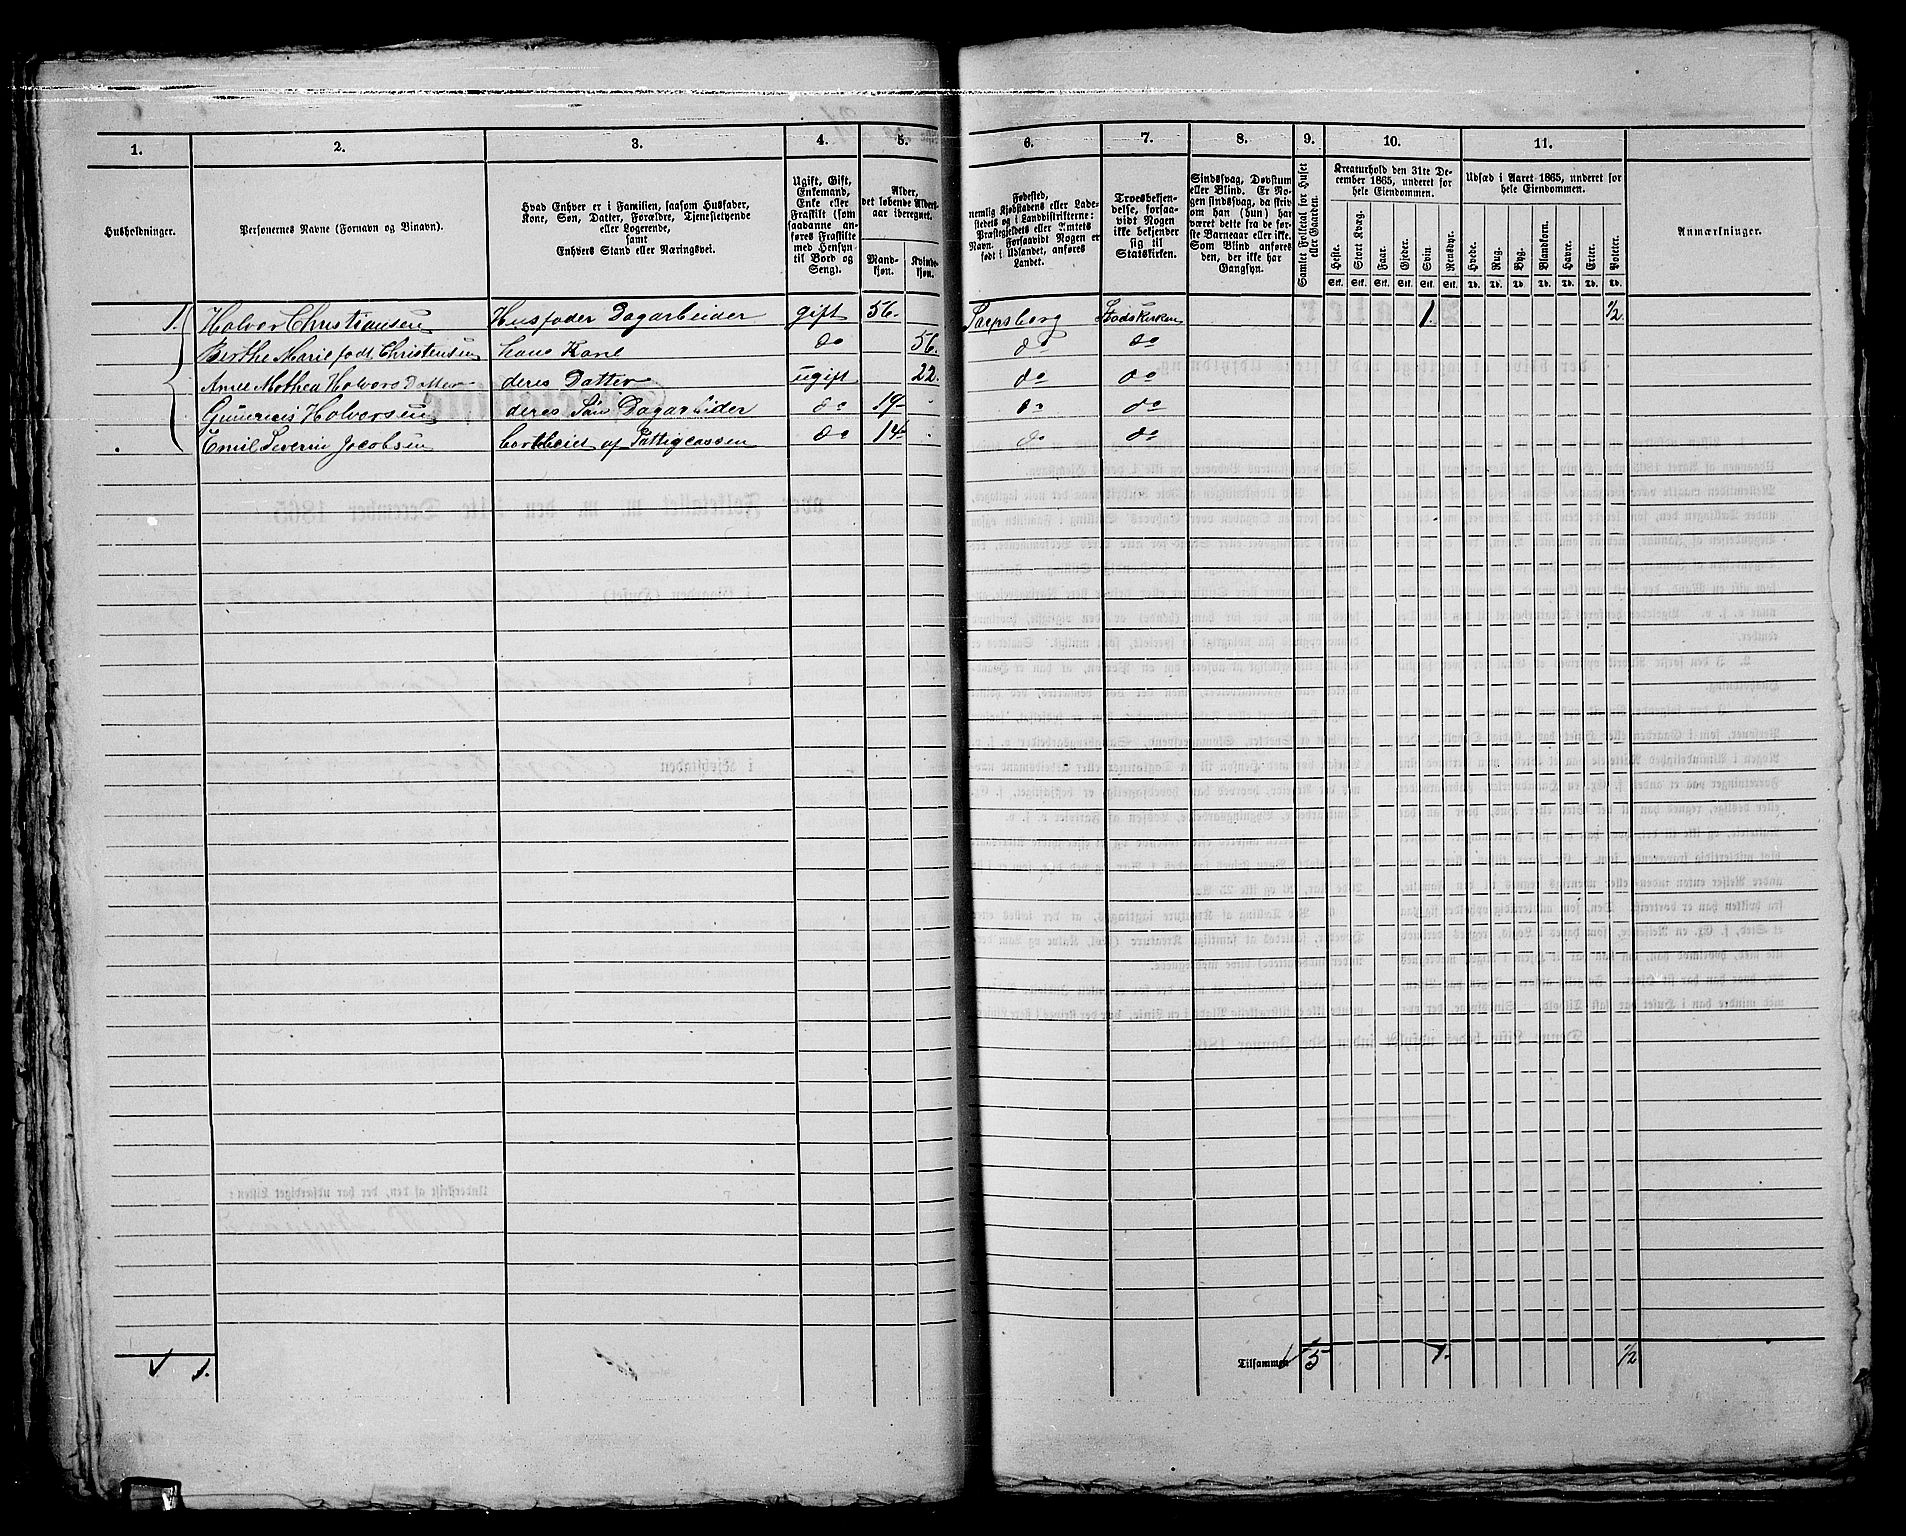 1. 2. 3. 4. 5. 6. 7. 8. 9. 10. 11.
Husholdninger.
Personernes Navne (Fornavn og Binavn).
Hvad Enhver er i Familien, saasom Husfader,
Kone, Søn, Datter, Forældre, Tjenestetyende
eller Logerende,
samt
Enhvers Stand eller Næringsvei.
Ugift, Gift,
Enkemand,
Enke eller
Fraskilt (som
saadanne an-
føres Fraskilte
med Hensyn
til Bord og
Seng).
Alder,
det løbende Alders-
aar iberegnet.
Mand-
kjøn.
Kvinde-
kjøn.
Fødested,
nemlig Kjøbstadens eller Lade-
stedets og i Landdistrikterne:
Præstegjeldets eller Amtets
Navn. Forsaavidt Nogen er
født i Udlandet, anføres
Landet.
Troesbekjen-
delse, forsaa-
vidt Nogen
ikke bekjender
sig til
Statskirken.
Sindssvag, Døvstum
eller Blind. Er No-
gen sindssvag, da skriv
om han (hun) har
været dette fra de før-
ste Barneaar eller ikke.
Som Blind anføres
den, der ikke har
Gangsyn.
Samlet Folketal for Huset
eller Gaarden.
Kreaturhold den 31te De-
cember 1865, underet for
hele Eiendommen.
Heste. Stort Kvæg. Faar. Gjeder. Svin. Rensdyr.
Stk. Stk. Stk. Stk. Stk. Stk.
Udsæd i Aaret 1865, underet for
hele Eiendommen.
Hvede. Rug. Byg. Blandkorn. Havre. Erter. Poteter.
Td. Td. Td. Td. Td. Td. Td.
Anmærkninger.
1. Halvor Christiansen Husfader Dagarbeider gift 56. Sarpsborg Stadskirken 1. 1/2
Berthe Marie født Christensen hans Kone do 56. do do
Anne Mathea Halvorsdatter deres Datter ugift 22. do do
Halvorsen deres Søn Dagarbeider do 19 do do
Emil Severin Jacobsen bortleiet af Fattigcassen do 14 do do
1. Tilsammen 5 1. 1/2